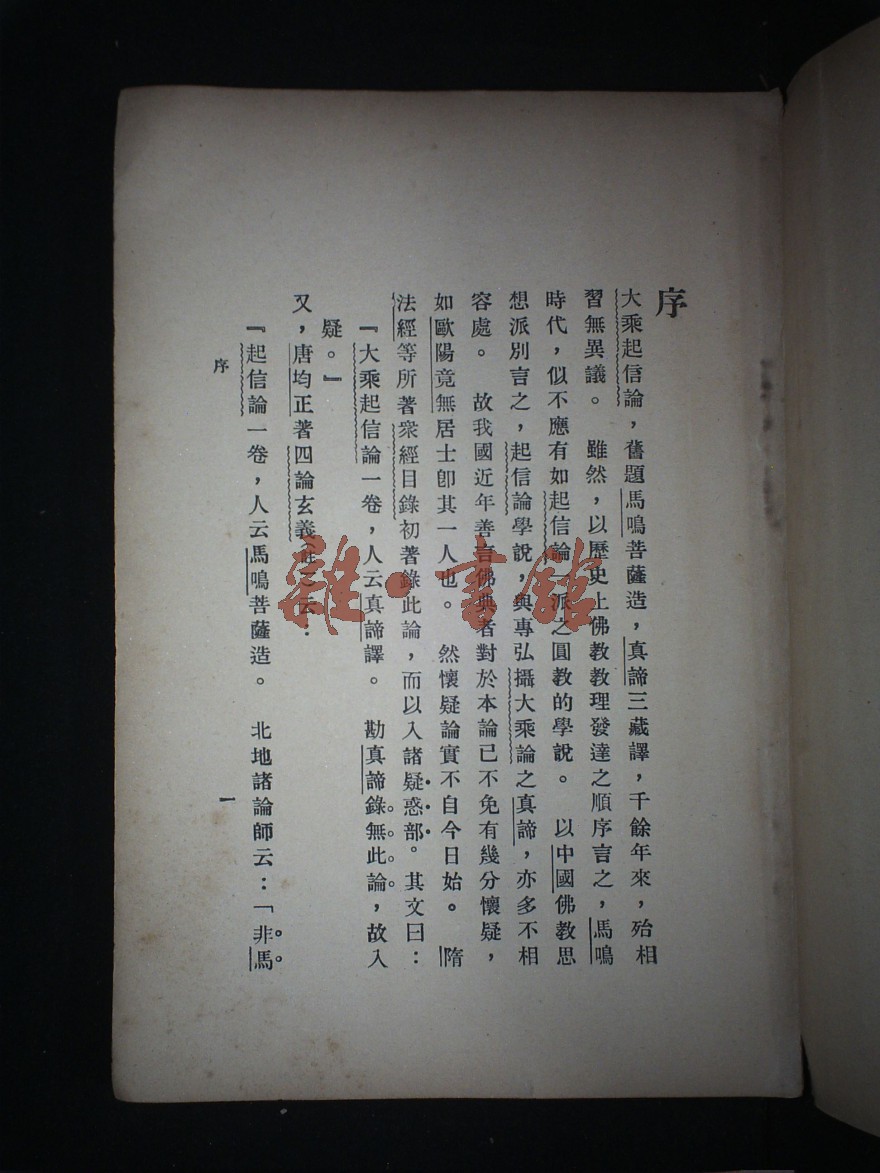 序
大乘起信論，舊題馬鳴菩薩造，真諦三藏譯，千餘年來，殆相
習無異議。 雖然，以歷史上佛教教理發達之順序言之，馬鳴
時代，似不應有如起信論一派之圓教的學說。 以中國佛教思
想派別言之，起信論學說，與專弘攝大乘論之真諦，亦多不相
容處。 故我國近年善言佛典者對於本論已不免有幾分懷疑，
如歐陽竟無居士卽其一人也。 然懷疑論實不自今日始。 隋
法經等所著衆經目錄初著錄此論，而以入諸疑惑部。其文曰：
『大乘起信論一卷，人云真諦譯。 勘真諦錄無此論，故入
疑。』
又，唐均正著四論玄義（註）云：
『起信論一卷，人云馬鳴菩薩造。 北地諸論師云：「非馬
序
一
雜·書館